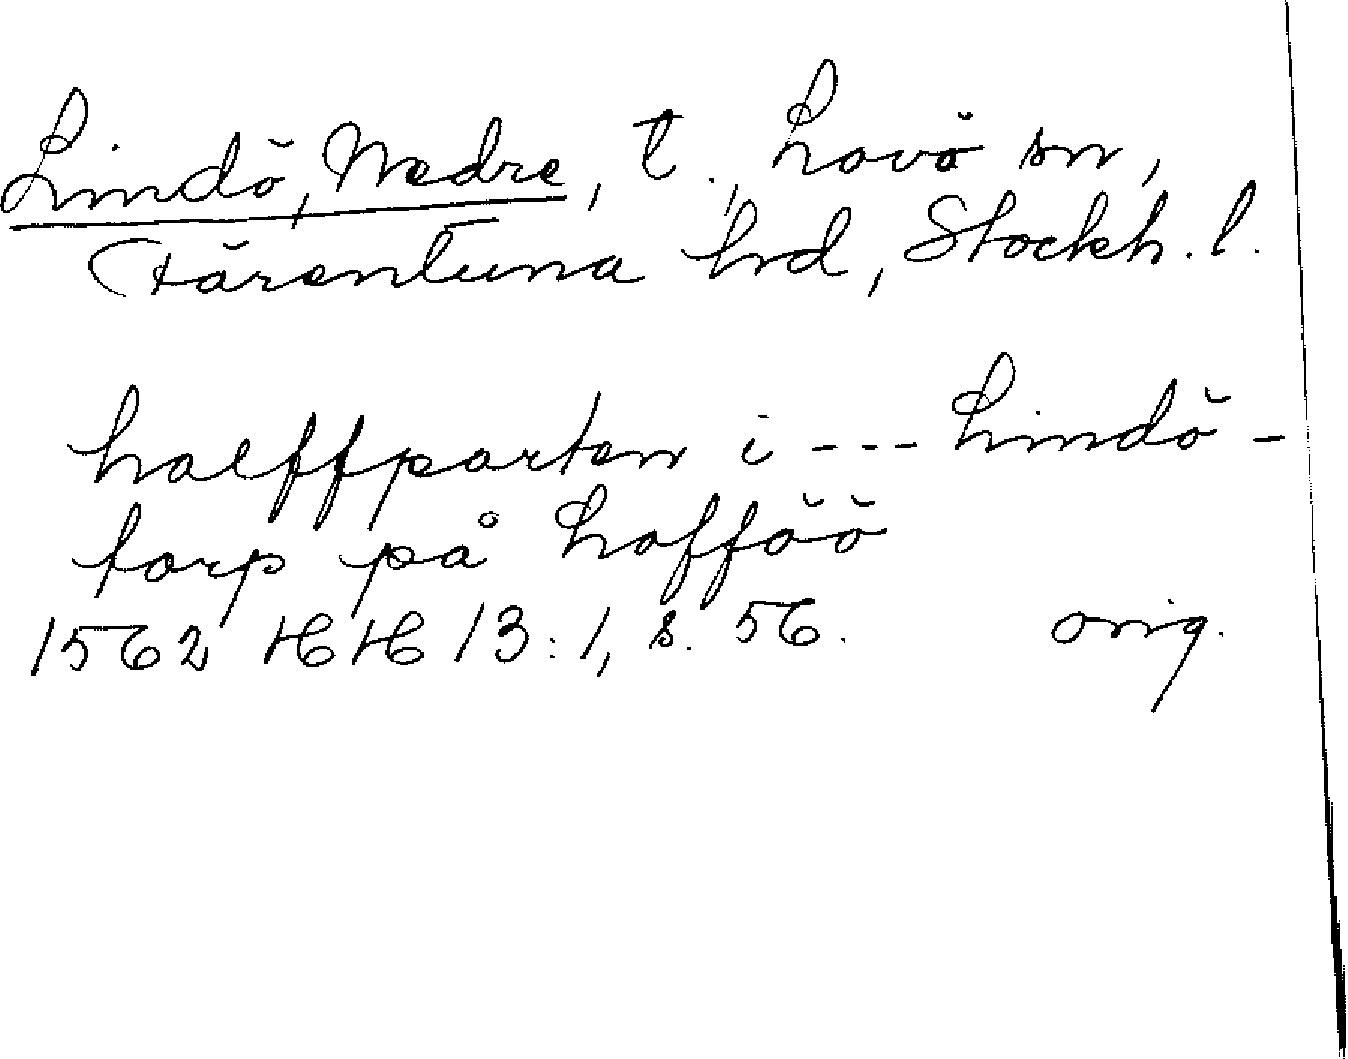 Lindö, Nedre, t., Lovö sn,
Färentuna hrd, Stockh. l.
halffparten i --- Lindö-
torp på Lofföö
1562 HH 13:1, s. 56. orig.